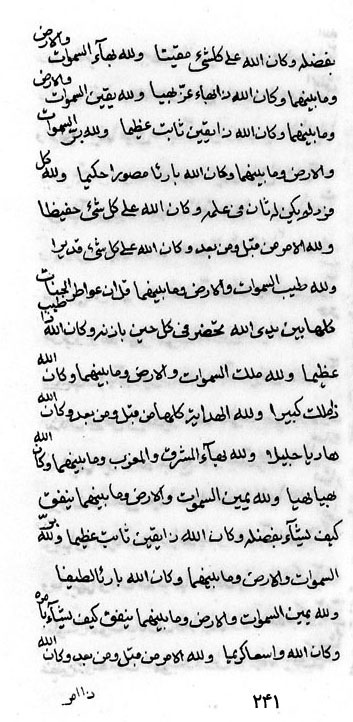 بفضله وكان الله على كلشئ مقيتا ولله بهآء السموات والارض
وما بينهما وكان الله ذا بهاء عز بهيا ولله يقين السموات والارض
وما بينهما وكان الله ذا يقين ثابت عظيما ولله بر السموات
والارض وما بينهما وكان الله بارئا مصورا حكيما ولله كل
فرد لم يكن له ثان فى علمه وكان الله على كل شئ حفيظا
ولله الامر من قبل ومن بعد وكان الله على كل شئ قديرا
ولله طيب السموات والارض وما بينهما قل ان عواطر الجينات
كلها بين يدى الله تحضر فى كل حين باذنه وكان الله ذا طيب
عظيما ولله ملك السموات والارض وما بينهما وكان الله
ذا ملك كبيرا ولله الهداية كلها من قبل ومن بعد وكان الله
هاديا جليلا ولله بهآء المشرق والمغرب وما بينهما وكان الله
بهيا بهيا ولله يمين السموات والارض وما بينهما ينفق
كيف يشآء بفضله وكان الله ذا يقين ثابت عظيما ولله بر
السموات والارض وما بينهما وكان الله بارئا لطيفا
ولله يمين السموات والارض وما بينهما ينفق كيف يشآء بامره
وكان الله واسعا كريما ولله الامر من قبل ومن بعد وكان الله
ذا امر
۲۴۱